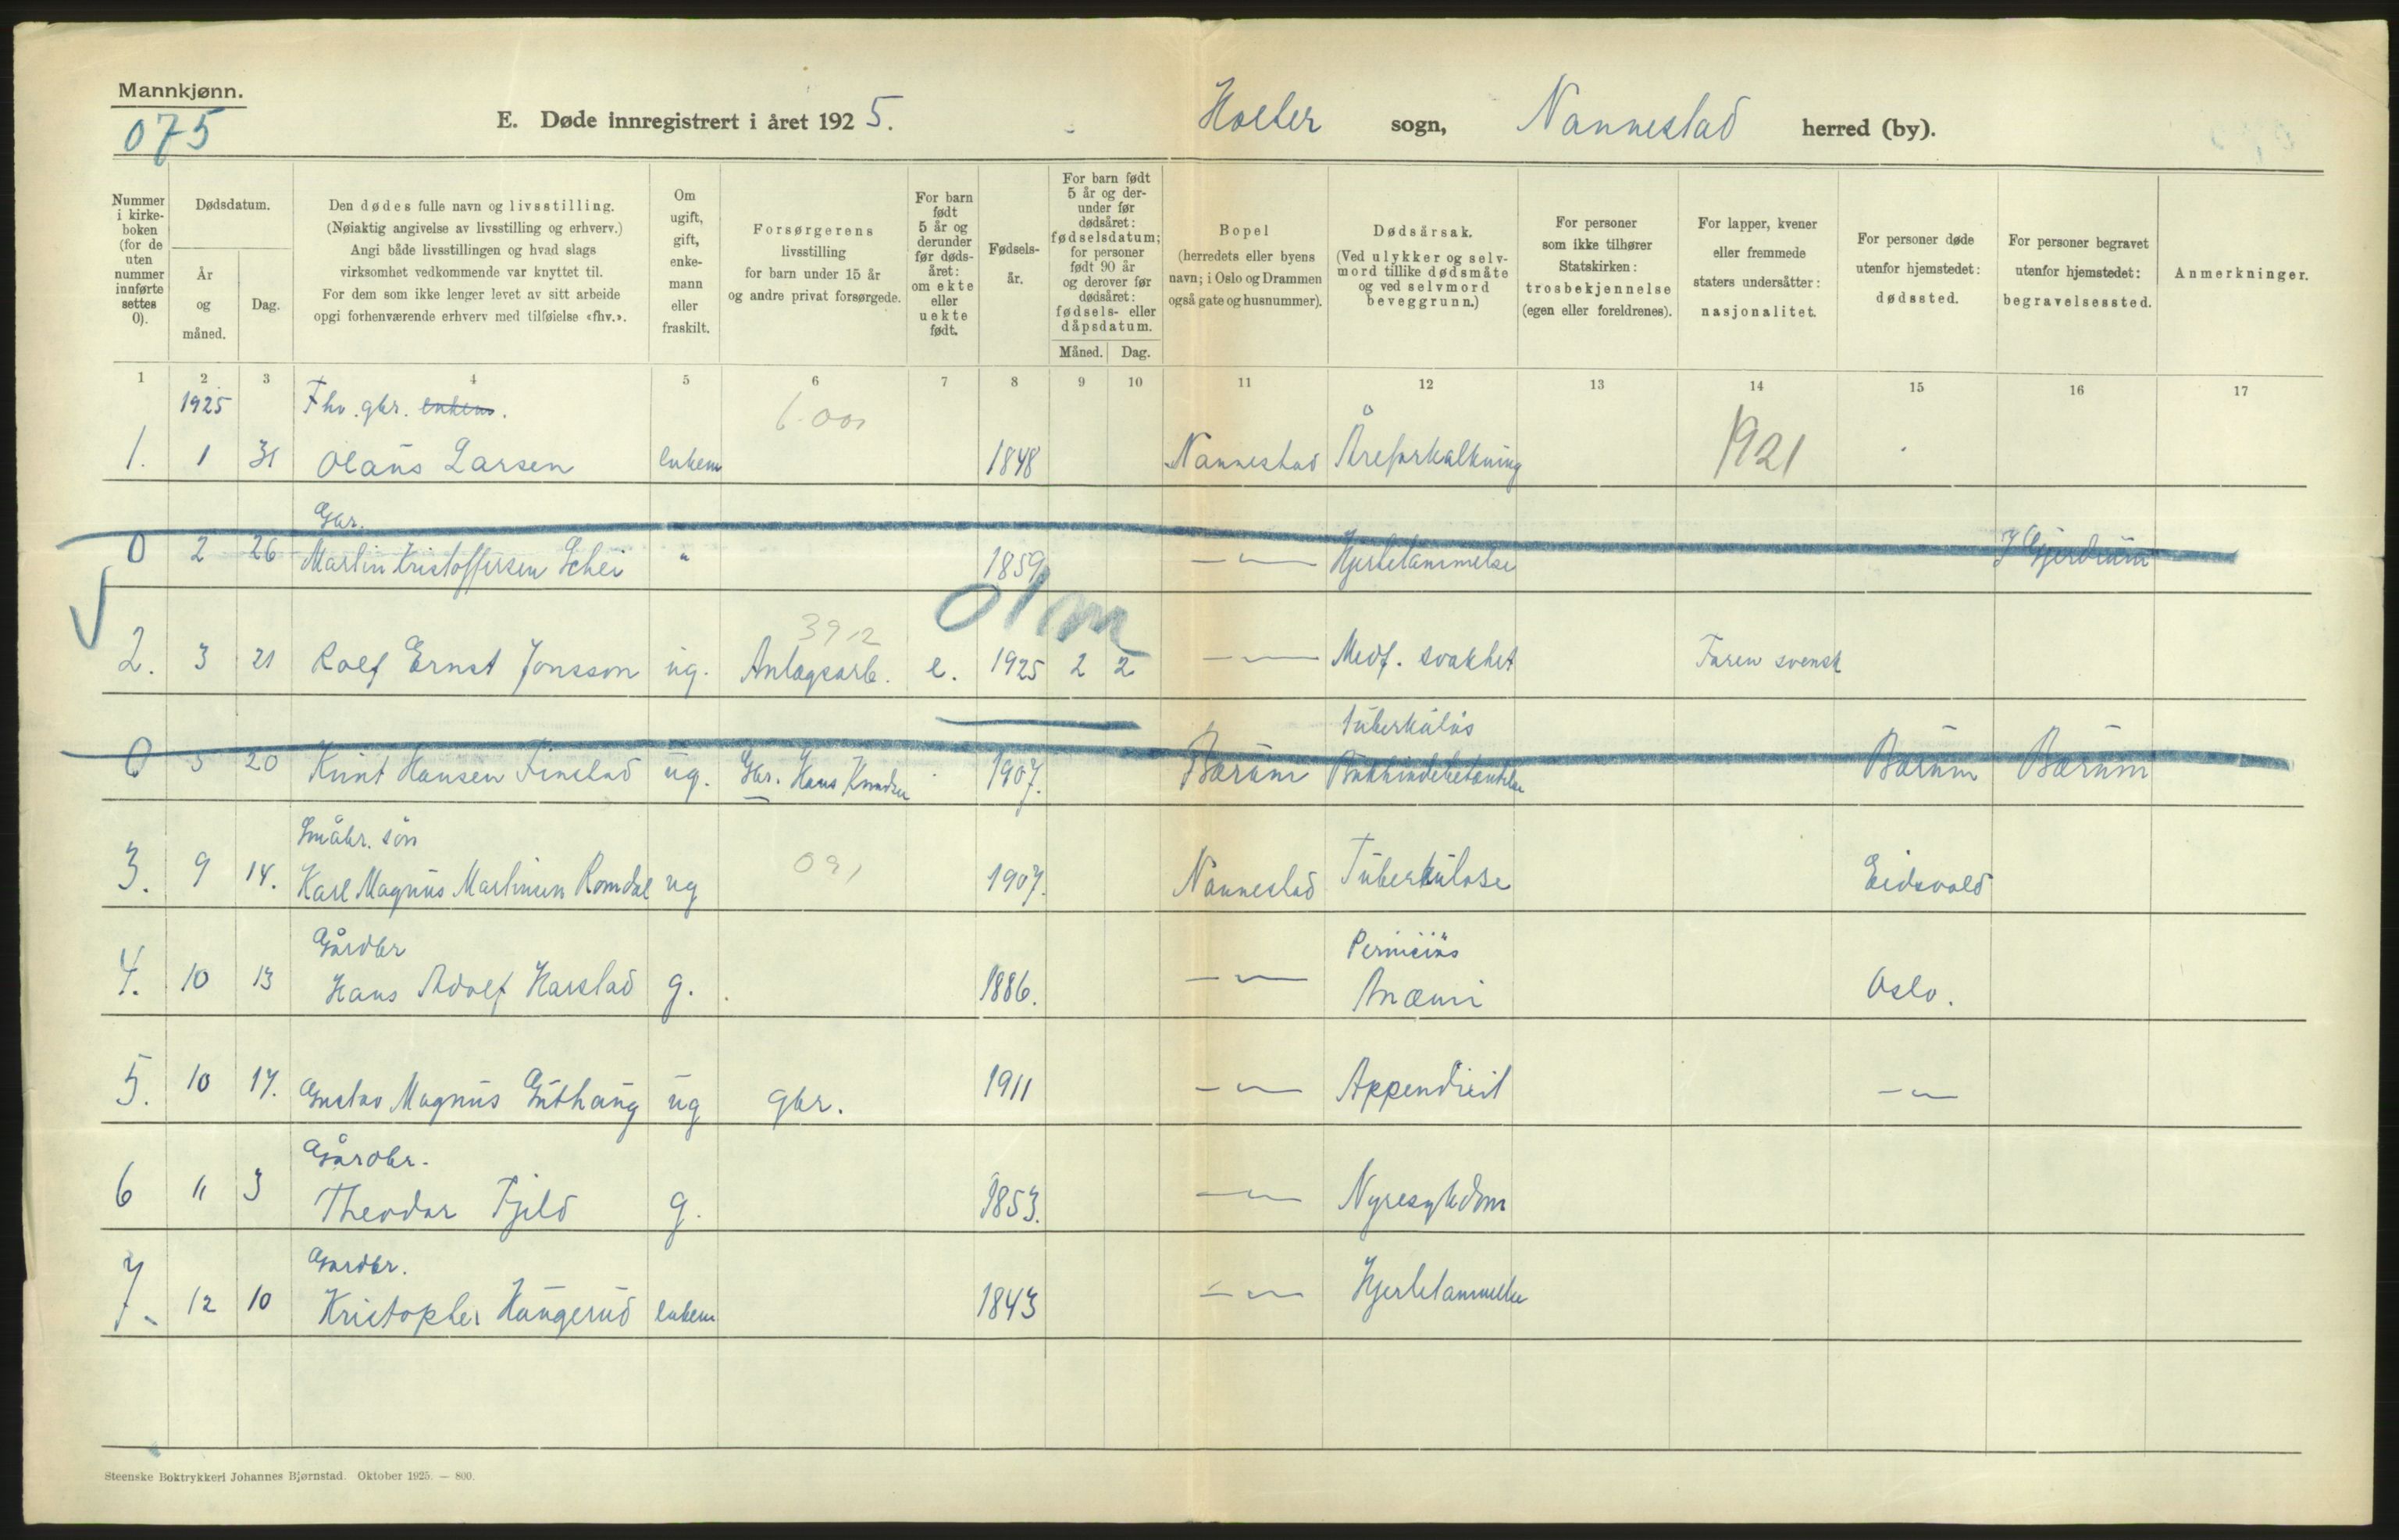 Mannkjønn.
075
E. Døde innregistrert i året 1925. Holter sogn, Nannestad herred (by).
Nummer i kirkeboken (for de uten nummer innførte settes 0).
Dødsdatum.
År og måned.
Dag.
Den dødes fulle navn og livsstilling.
(Nøiaktig angivelse av livsstilling og erhverv.)
Angi både livsstillingen og hvad slags
virksomhet vedkommende var knyttet til.
For dem som ikke lenger levet av sitt arbeide
opgi forhenværende erhverv med tilføielse «fhv.».
Om ugift, gift, enkemann eller fraskilt.
Forsørgerens
livsstilling
for barn under 15 år
og andre privat forsørgede.
For barn født 5 år og derunder før dødsåret: om ekte eller uekte født.
Fødselsår.
For barn født 5 år og derunder før dødsåret: fødselsdatum; for personer født 90 år og derover før dødsåret: fødsels- eller dåpsdatum.
Måned. Dag.
Bopel
(herredets eller byens
navn; i Oslo og Drammen
også gate og husnummer).
Dødsårsak.
(Ved ulykker og selvmord tillike dødsmåte og ved selvmord beveggrunn.)
For personer
som ikke tilhører
Statskirken:
trosbekjennelse
(egen eller foreldrenes).
For lapper, kvener
eller fremmede
staters undersåtter:
nasjonalitet.
For personer døde
utenfor hjemstedet:
dødssted.
For personer begravet
utenfor hjemstedet:
begravelsessted.
Anmerkninger.
1 2 3 4 5 6 7 8 9 10 11 12 13 14 15 16 17
1925 Fhv. gbr. enkem.
1. 1 31 Olaus Larsen enkem 1848 Nannestad Åreforkalkning 1921
Gbr.
0 2 26 Martin Kristoffersen Schei " 1859 — " — Hjertelammelse I Gjerdrum
01m
3912
2. 3 21 Rolf Ernst Jonsson ug. Anlægsarb. e. 1925 2 2 — " — Medf. svakhet Faren svensk
tuberkuløs
0 5 20 Knut Hansen Finstad ug. Gbr. Hans Knudsen 1907. Bærum Bukhindebetændelse Bærum Bærum
Småbr. søn
3. 9 14. Karl Magnus Martinsen Romdal ug 091 1907. Nannestad Tuberkulose Eidsvold
Gårdbr Perniciøs
4. 10 13 Hans Adolf Harstad g. 1886. — " — Anæmi Oslo.
5. 10 17. Gustav Magnus Guthaug ug gbr. 1911 — " — Appendicit — " —
Gårdbr.
6 11 3 Theodor Fjeld g. 1853. — " — Nyresykdom
Gardbr.
7. 12 10 Kristopher Haugerud enkem 1843 — " — Hjertelammelse
Steenske Boktrykkeri Johannes Bjørnstad. Oktober 1925. — 800.